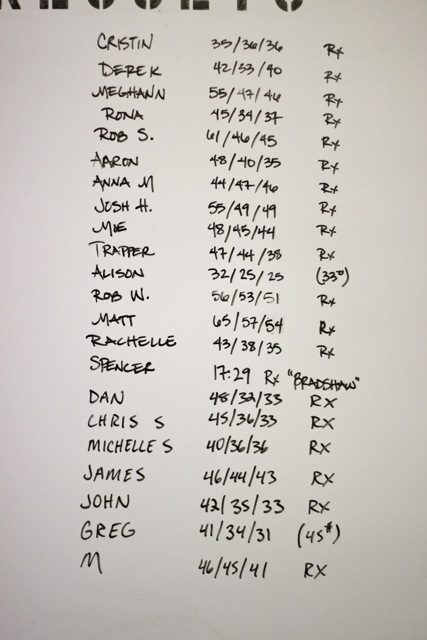 CRISTIN 35/36/36 Rx
DEREK 42/53/40 Rx
MEGHANN 55/47/46 Rx
RONA 45/34/37 Rx
ROB S. 61/46/45 Rx
AARON 48/40/35 Rx
ANNA M 44/47/46 Rx
JOSH H. 55/49/49 Rx
MOE 48/45/44 Rx
TRAPPER 47/44/38 Rx
ALISON 32/25/25 (33#)
ROB W. 56/53/51 Rx
MATT 65/57/54 Rx
RACHELLE 43/38/35 Rx
SPENCER 17:29 Rx "BRADSHAW"
DAN 48/32/33 RX
CHRIS S 45/36/33 RX
MICHELLE S 40/36/36 RX
JAMES 46/44/43 RX
JOHN 42/35/33 RX
GREG 41/34/31 (45#)
M 46/45/41 RX